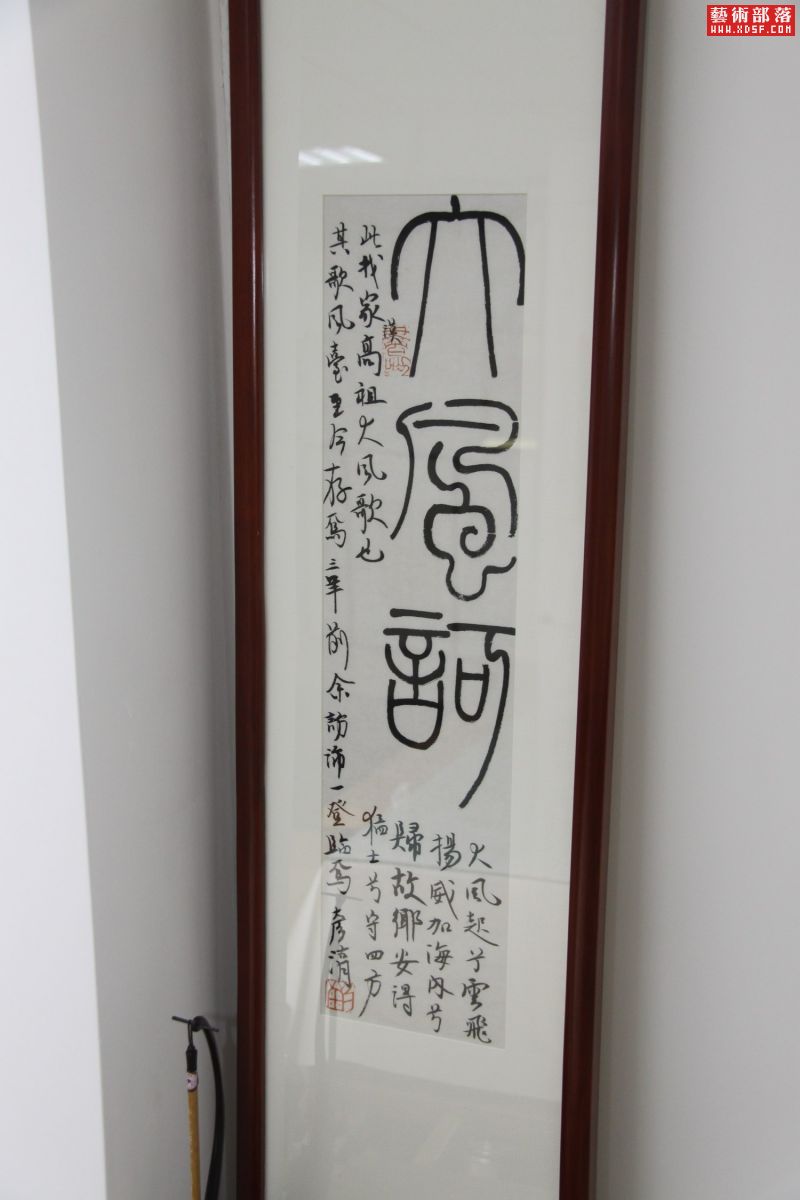 藝術部落
WWW.XDSF.COM
大風訶
大风起兮雲飛
揚威加海内兮
歸故鄉安得
猛士兮守四方
此我家漢高祖大风歌也
其歌风臺至今存焉三年前余訪沛一登臨焉彥清